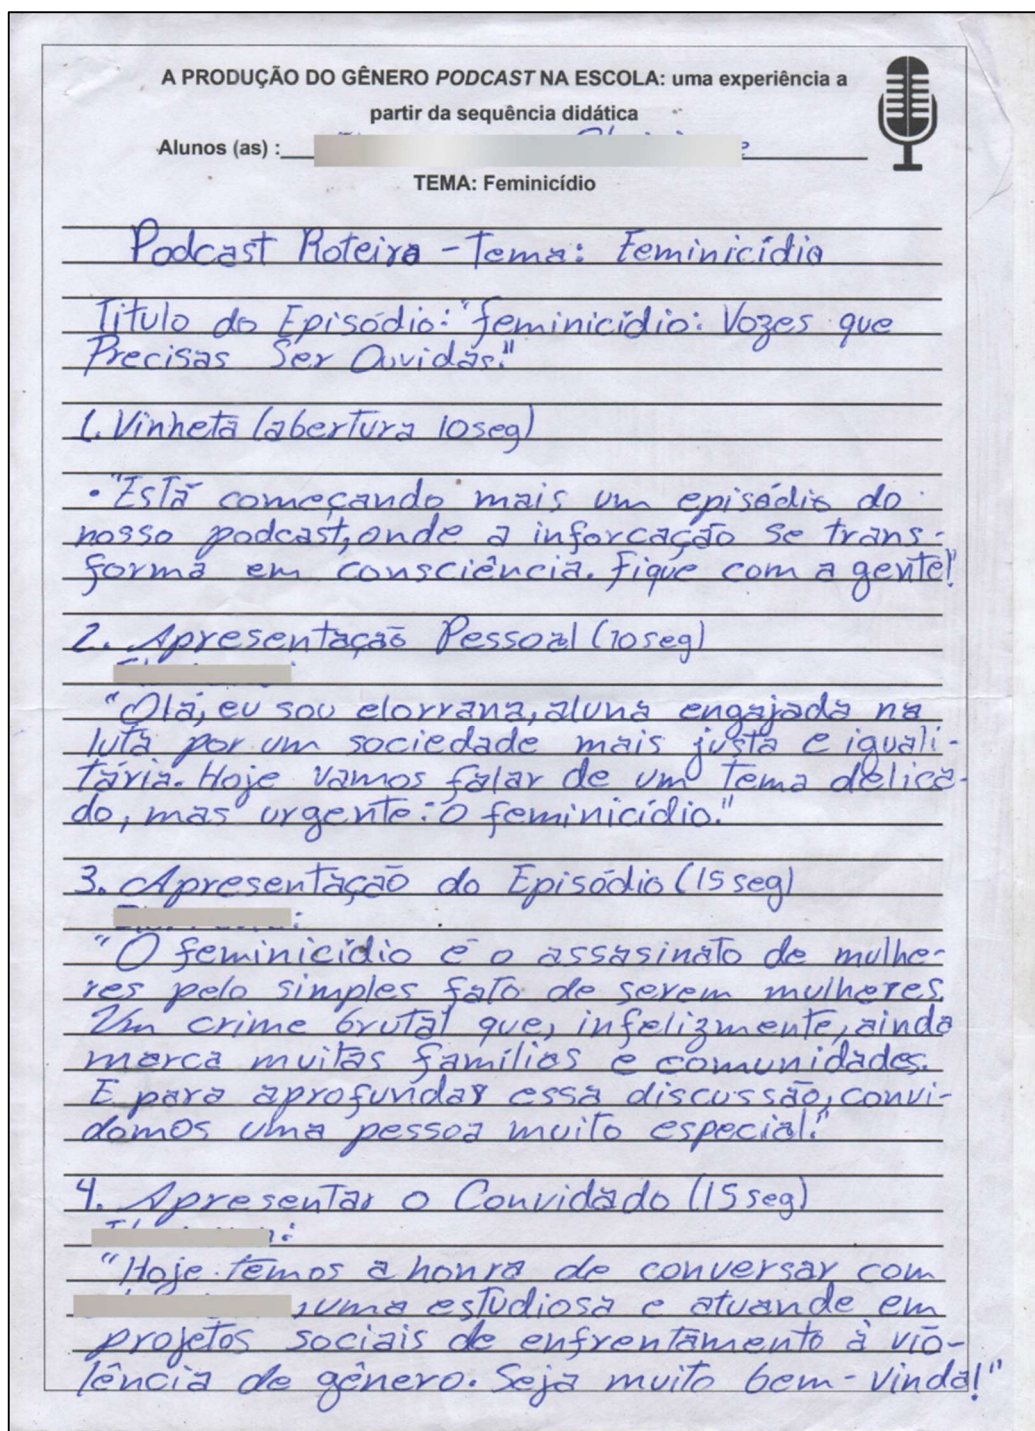 A PRODUÇÃO DO GÊNERO PODCAST NA ESCOLA: uma experiência a
partir da sequência didática
Alunos (as) :
TEMA: Feminicídio
Podcast Roteiro - Tema: Feminicídio
Titulo do Episódio: "feminicídio: Vozes que
Precisas Ser Ouvidas."
1. Vinheta (abertura 10seg)
• "Está começando mais um episódio do
nosso podcast, onde a inforcação se trans-
forma em consciência. Fique com a gente!"
2. Apresentação Pessoal (10seg)
"Olá, eu sou elorrana, aluna engajada na
luta por um sociedade mais justa e iguali-
tária. Hoje vamos falar de um tema delica-
do, mas urgente: O feminicídio."
3. Apresentação do Episódio (15 seg)
"O feminicídio é o assasinato de mulhe-
res pelo simples fato de serem mulheres.
Um crime brutal que, infelizmente, ainda
marca muitas famílias e comunidades.
E para aprofundar essa discussão, convi-
damos uma pessoa muito especial."
4. Apresentar o Convidado (15 seg)
"Hoje temos a honra de conversar com
, uma estudiosa e atuande em
projetos sociais de enfrentamento à vio-
lência de gênero. Seja muito bem-vinda!"